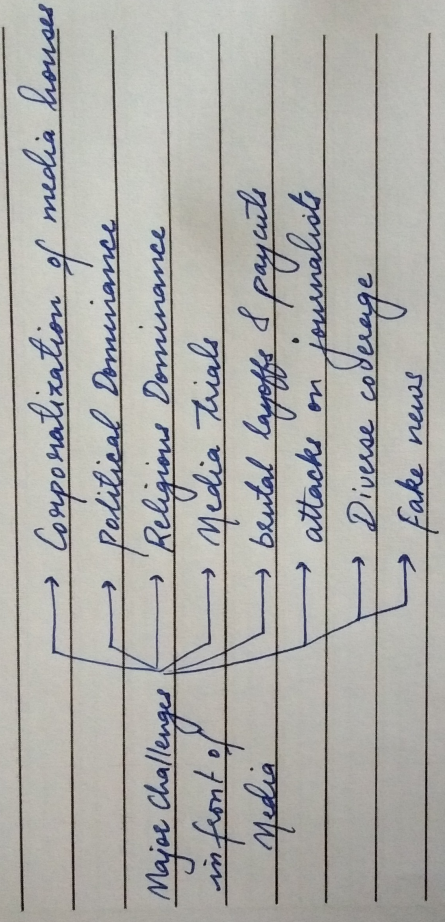 Major Challenges
in front of
Media
Corporatization of media houses
Political Dominance
Religious Dominance
Media trials
brutal layoffs & paycuts
attacks on journalists
Diverse coverage
Fake news